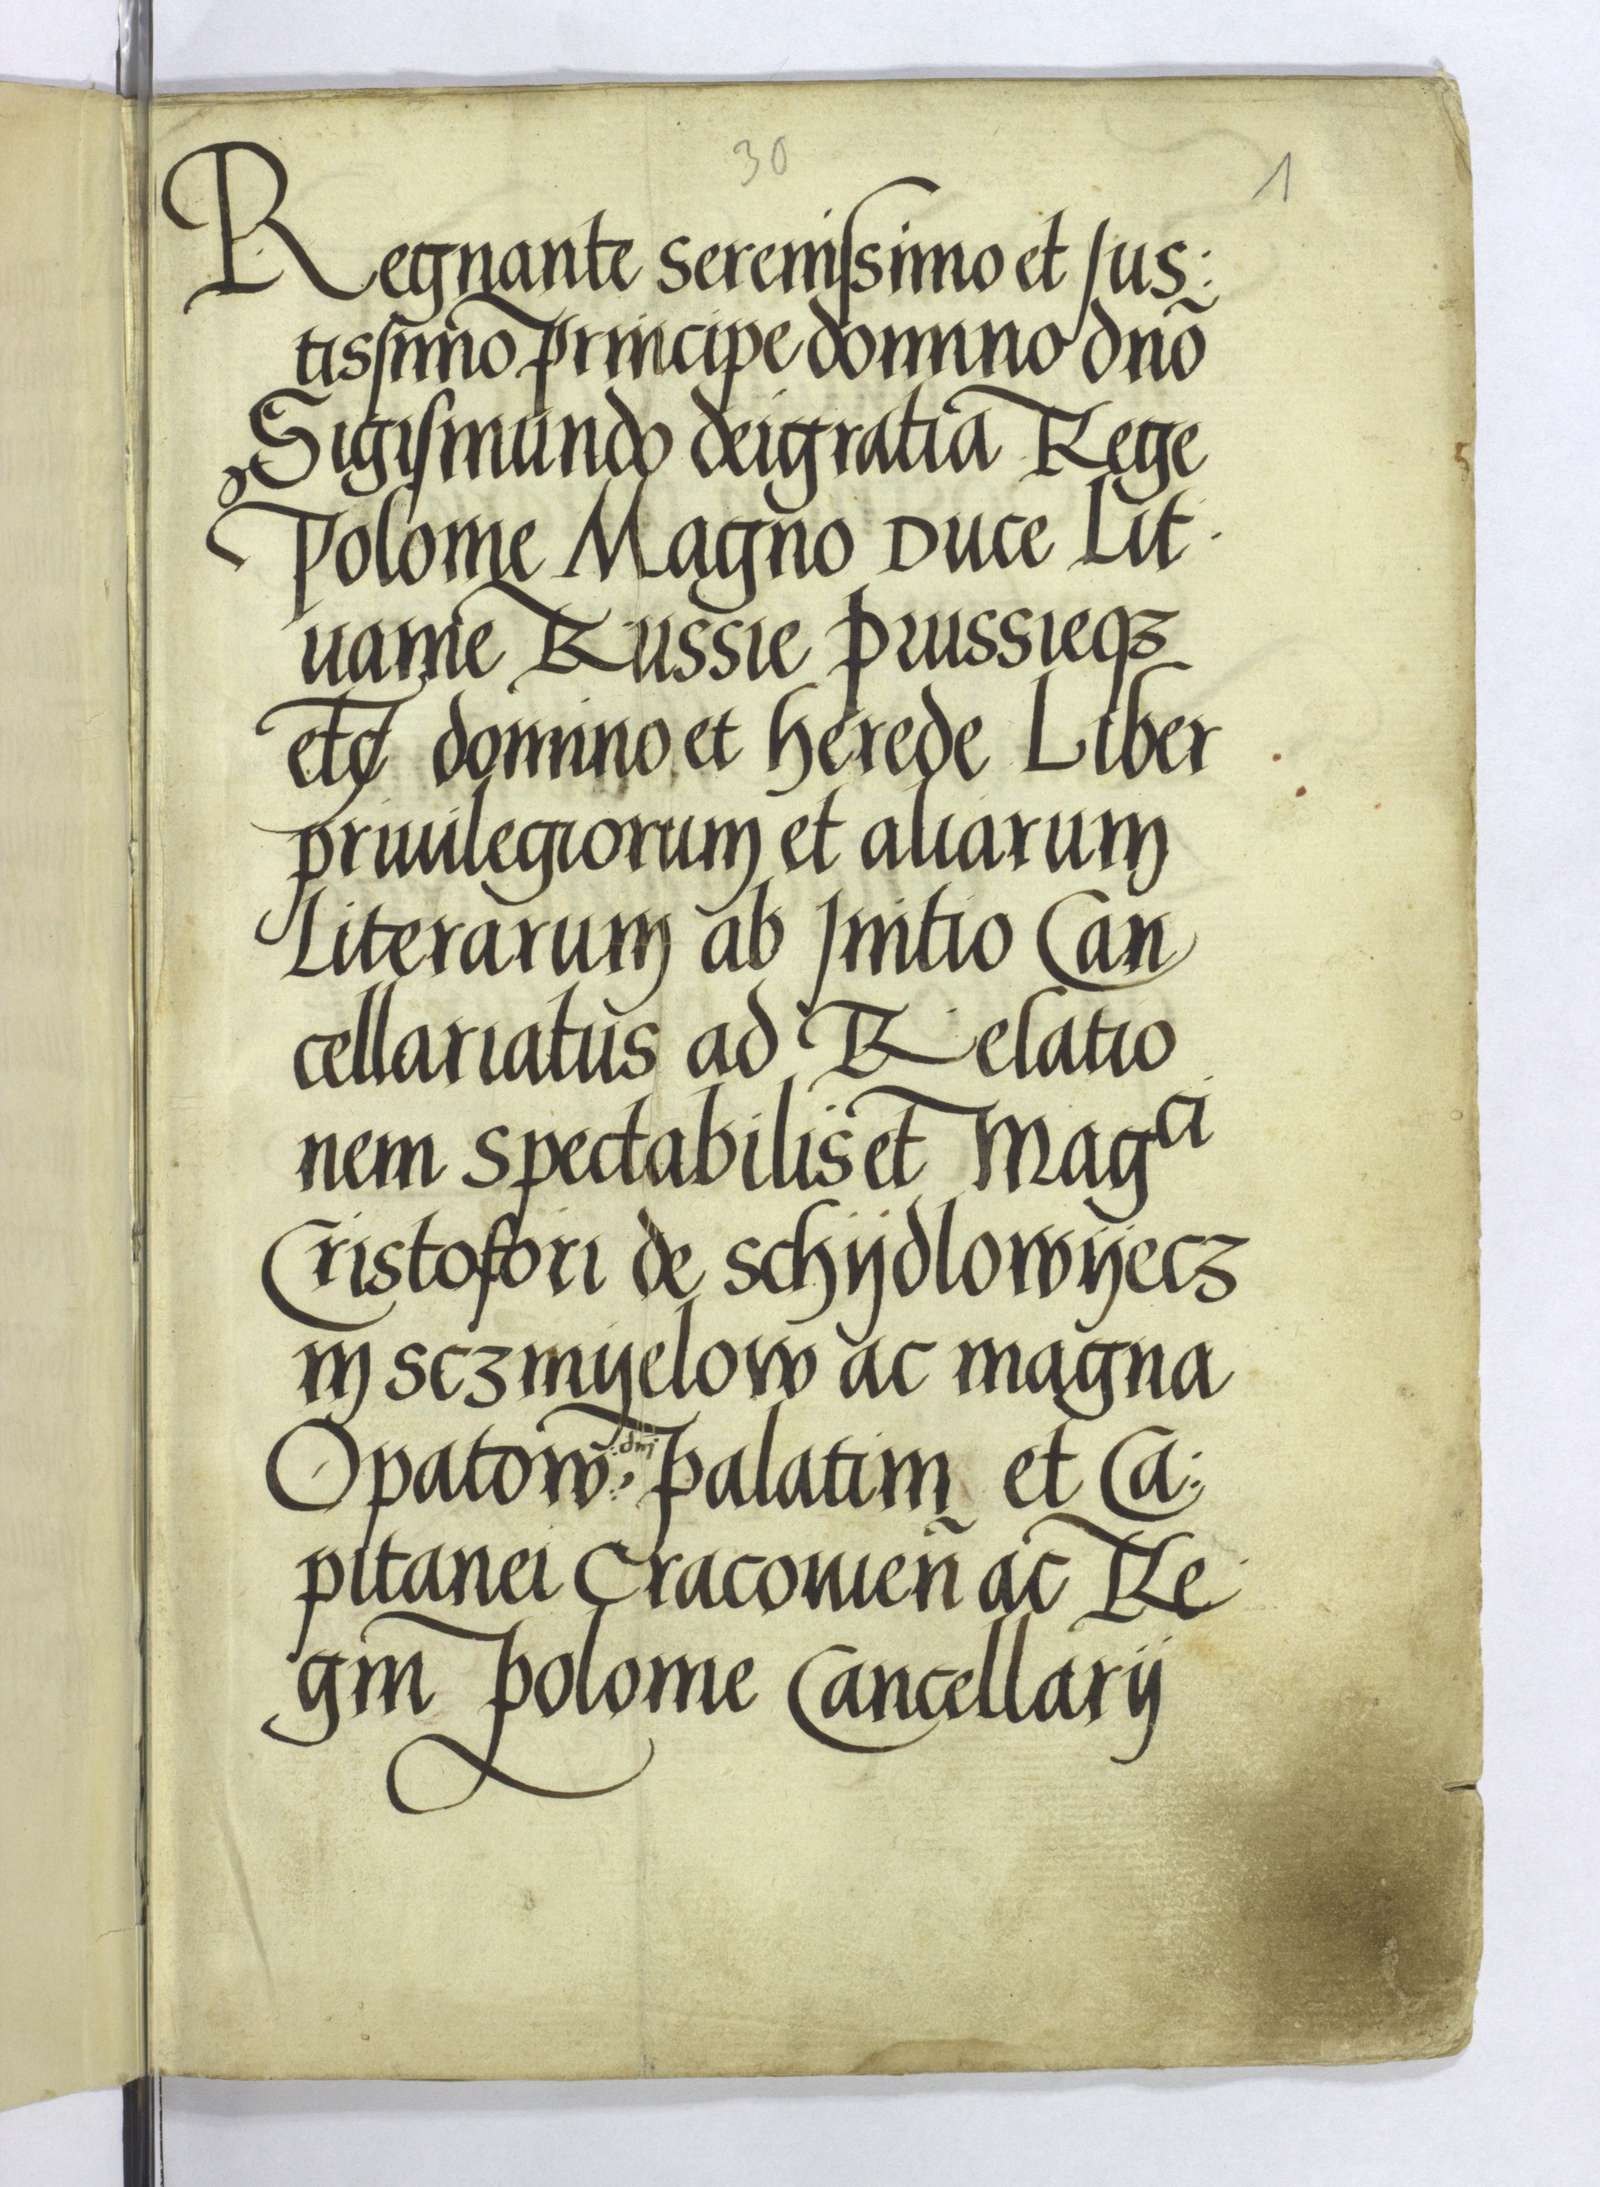 30 1
Regnante serenissimo et Jus:
tissimo Principe domino dno̅
Sigismundo dei gratia Rege
Polonie Magno Duce Lit
uanie Russie Prussieqꝫ
etc̸ domino et herede Liber
priuilegiorum et aliarum
Literarum ab Jnitio Can
cellariatus ad Relatio
nem spectabilis et Magci
Cristofori de schijdlowijecz
in sczmijelow ac magna
Opatow: dni Palatini et Ca:
pitanei Cracouien̅ ac Re
gni Polonie Cancellarij